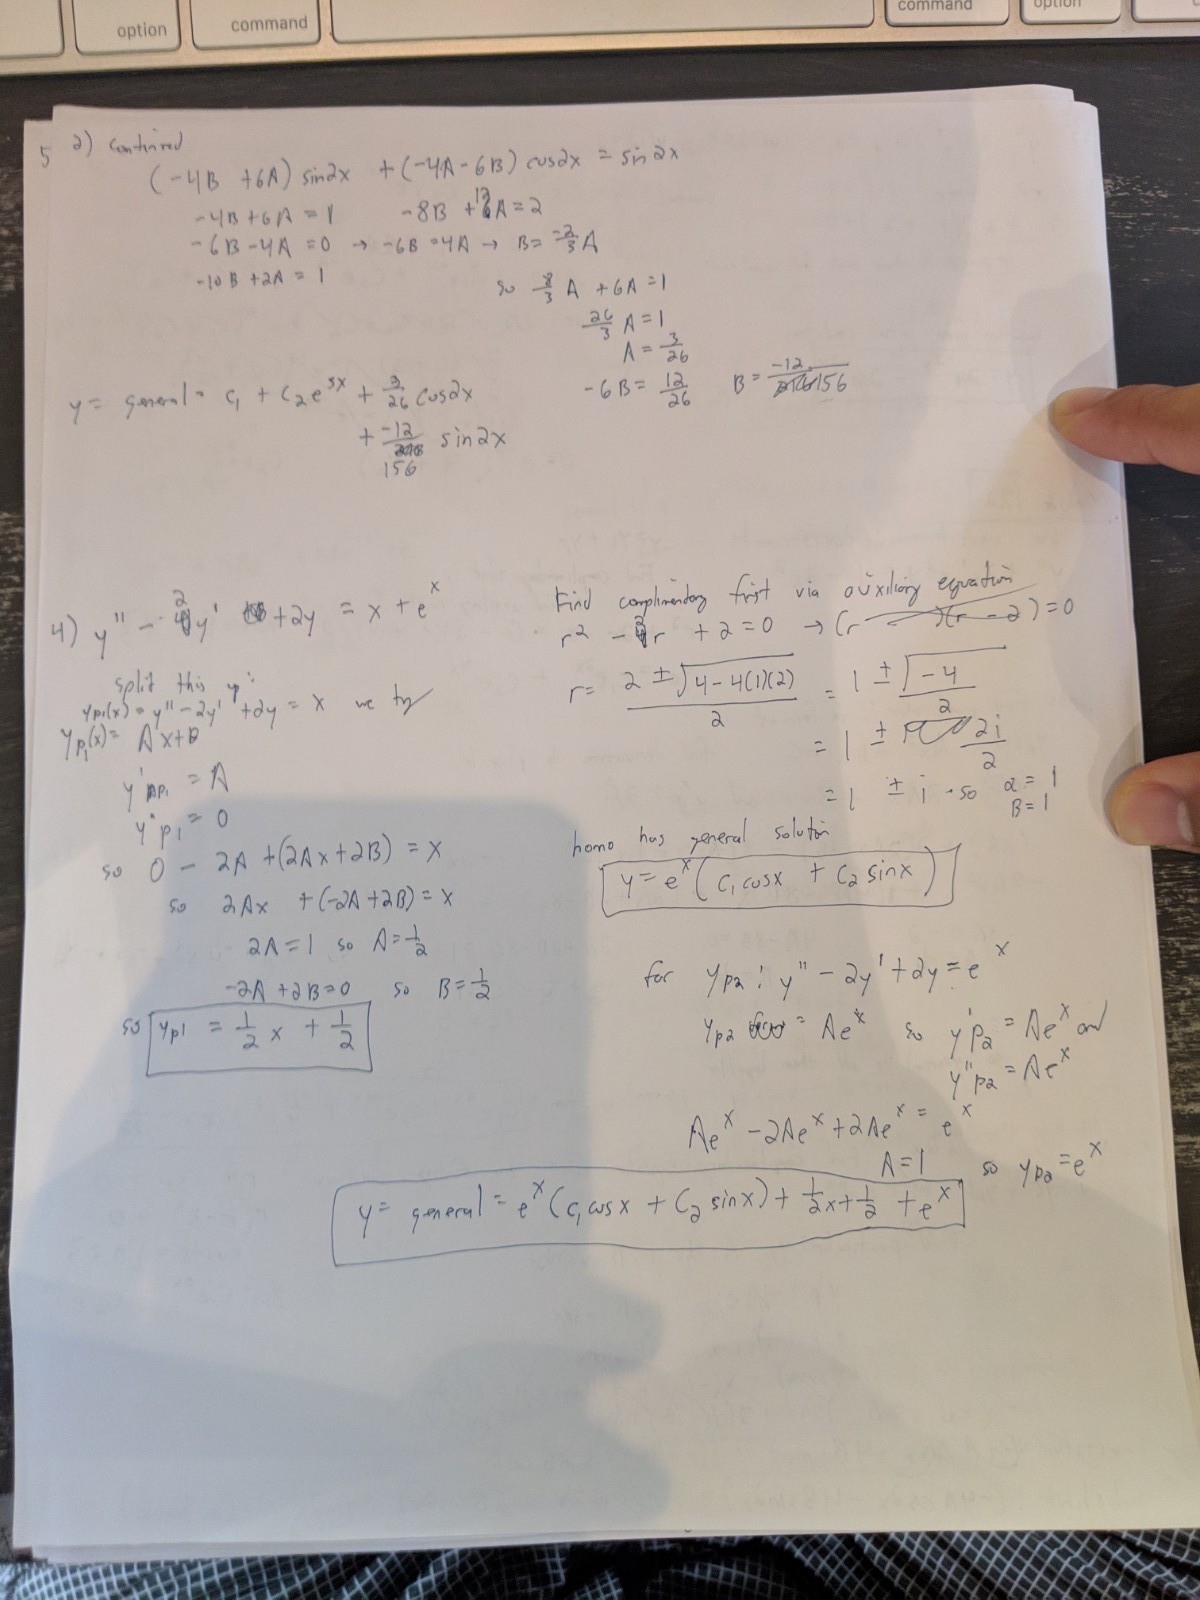 option
command
command
option
5 2) continued
(-4B +6A) sin2x + (-4A-6B) cos2x = sin2x
-4B+6A = 1 -8B +12A=2
-6B-4A =0 → -6B=4A → B= -2/3 A
-10B +2A = 1
so 8/3 A +6A=1
26/3 A=1
A= 3/26
-6B= 12/26 B= -12/156
y= general= c₁ + c₂e^3x + 3/26 cos2x
+ -12/156 sin2x
4) y'' - 2y' +2y = x + e^x
split this up:
yp₁(x)= y''-2y'+2y = x we try
yp₁(x)= Ax+B
y'p₁ = A
y''p₁ = 0
so 0 - 2A +(2Ax+2B) = x
so 2Ax +(-2A+2B) = x
2A=1 so A=1/2
-2A+2B=0 so B=1/2
so yp1 = 1/2 x + 1/2
Find complimentary first via auxiliary equation
r² - 2r + 2=0 → (r )(r-2)=0
r= 2 ± √4-4(1)(2) / 2 = 1 ± √-4 / 2
= 1 ± 2i/2
= 1 ± i so α = 1
B=1
homo has general solution
y= e^x (c₁cosx + c₂sinx)
for yp2: y''-2y'+2y=e^x
yp2 = Ae^x so y'p2 = Ae^x and
y''p2 = Ae^x
Ae^x -2Ae^x+2Ae^x = e^x
A=1 so yp2=e^x
y= general= e^x (c₁cosx + c₂sinx)+ 1/2x+1/2 +e^x